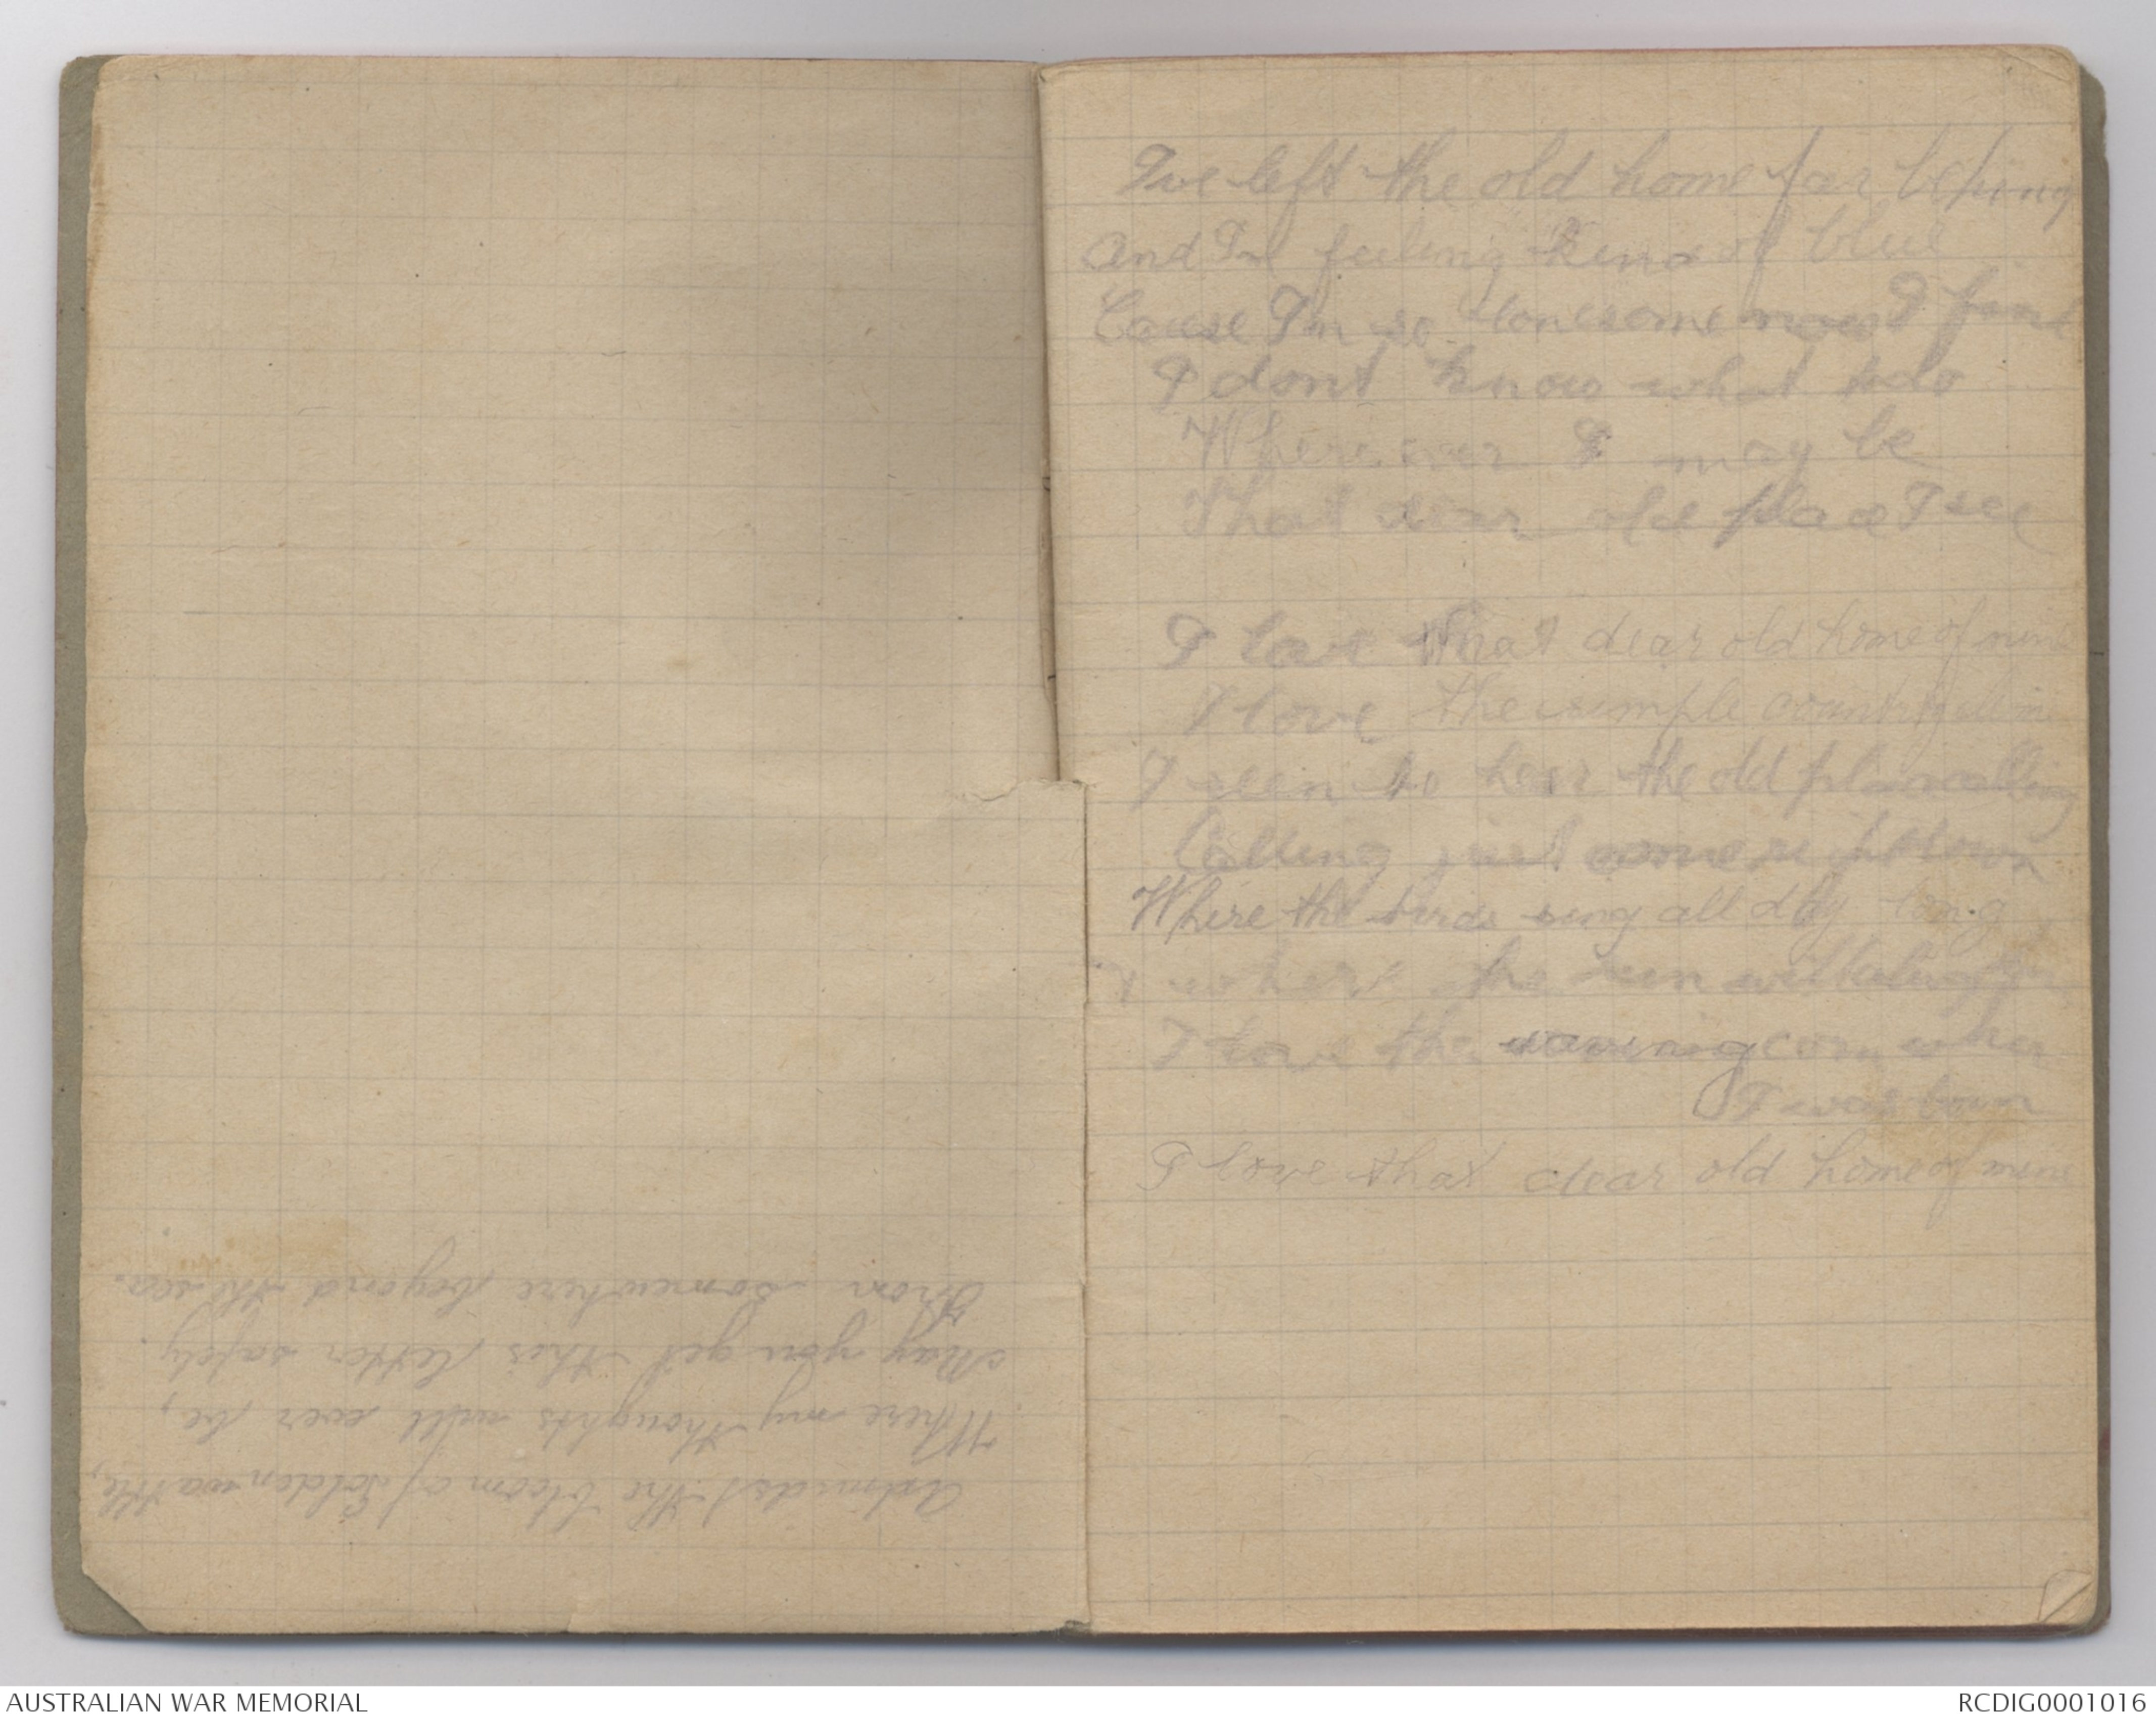 Admidst the bloom of Golden wattle,
Where my thoughts will ever be,
May you get this letter safely.
From somewhere beyond the sea.
I've left the old home far behing
And I'm feeling kind of blue
Cause I'm so lonesome now I find
I dont know what to do
Where ever I may be
That dear old place I see
I love that dear old home of mine
I love the simple country
I seem to hear the old place calling
Calling just
Where the birds sing all day long
where the sun
I love the waving corn where
I was born
I love that dear old home of mine
AUSTRALIAN WAR MEMORIAL
RCDIG0001016